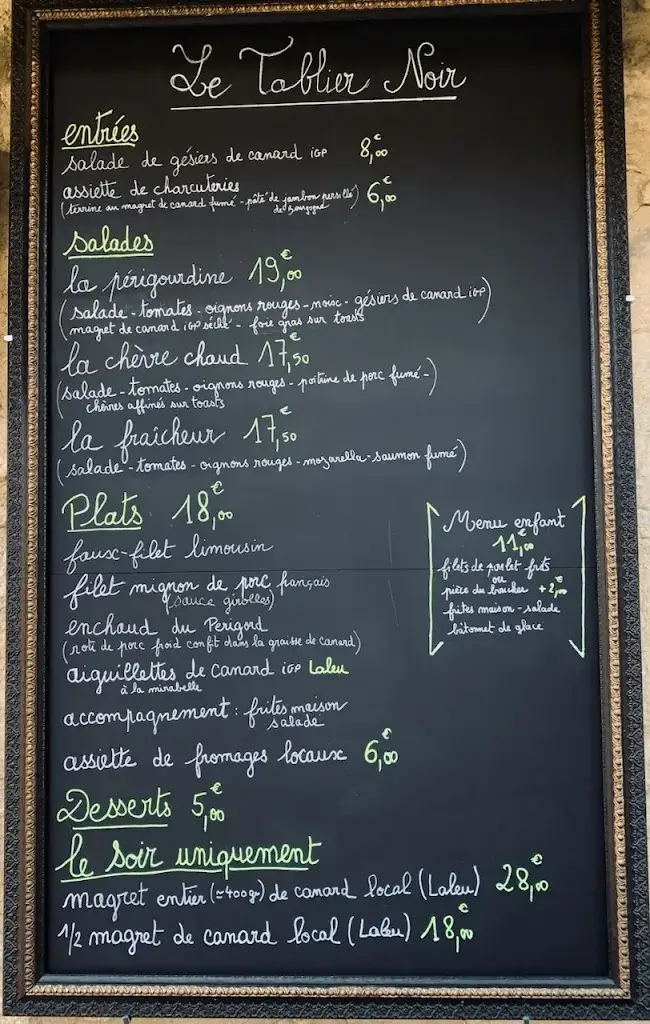 Le Tablier Noir
entrées
salade de gésiers de canard IGP 8,00€
assiette de charcuteries 6,00€
(terrine au magret de canard fumé - pâté de jambon persillé)
de Bourgogne
salades
la périgourdine 19,00€
(salade - tomates - oignons rouges - noix - gésiers de canard IGP
magret de canard IGP séché - foie gras sur toasts)
la chèvre chaud 17,50€
(salade - tomates - oignons rouges - poitrine de porc fumé -
chèvres affinés sur toasts)
la fraîcheur 17,50€
(salade - tomates - oignons rouges - mozarella - saumon fumé)
Plats 18,00€
faux-filet limousin
filet mignon de porc français
(sauce girolles)
enchaud du Périgord
(roti de porc froid confit dans la graisse de canard)
aiguillettes de canard IGP Laleu
à la mirabelle
accompagnement : frites maison
salade
assiette de fromages locaux 6,00€
Menu enfant
11,00€
filets de poulet frits
ou
pièce du boucher +2,00€
frites maison - salade
bâtonnet de glace
Desserts 5,00€
le soir uniquement
magret entier (≈400gr) de canard local (Laleu) 28,00€
1/2 magret de canard local (Laleu) 18,00€